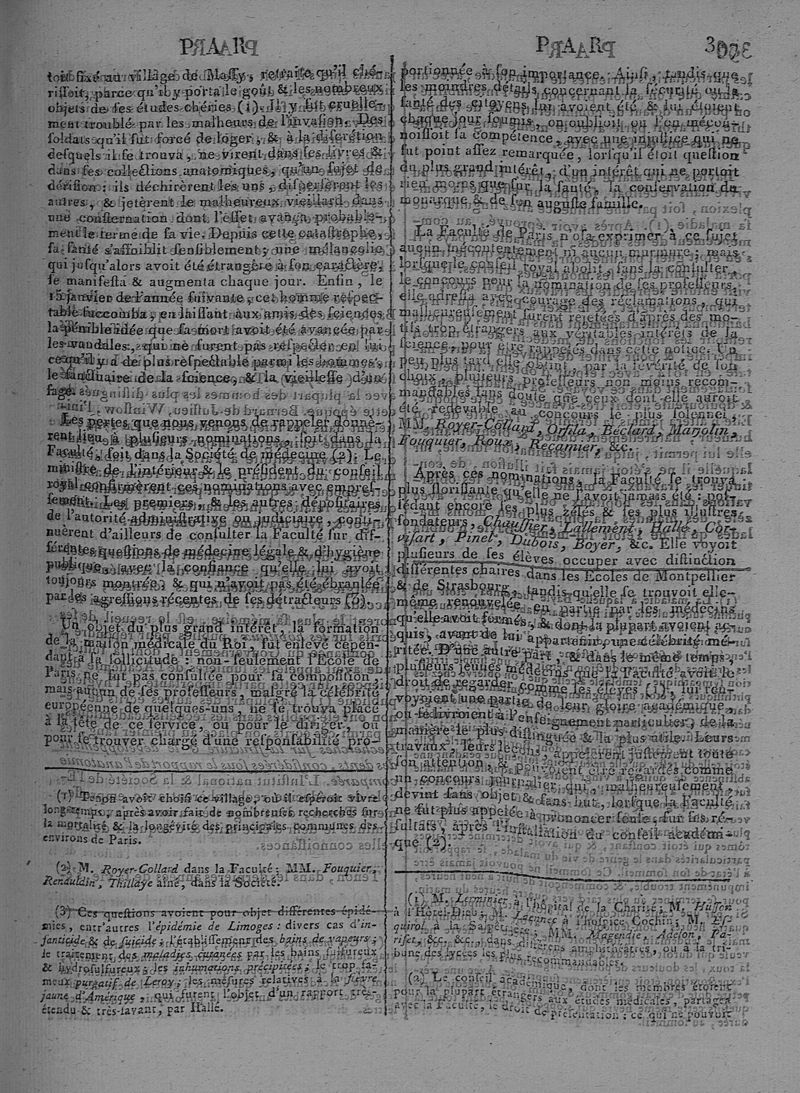 PAR
PAR
au village de Massy, retraite qu'il ché-
rissoit, parce qu'il y porta le goût & les nombreux
objets de ses études chéries (1). Il y fut cruelle-
ment troublé par les malheurs de l'invasion. Des
soldats qu'il fut forcé de loger, & à la discrétion
desquels il se trouva, ne virent dans ses livres &
dans ses collections anatomiques, qu'un sujet de
dérision : ils déchirèrent les uns, dispersèrent les
autres, & jetèrent le malheureux vieillard dans
une consternation dont l'effet avança probable-
ment le terme de sa vie. Depuis cette catastrophe,
sa santé s'affoiblit sensiblement; une mélancolie
qui jusqu'alors avoit été étrangère à son caractère,
se manifesta & augmenta chaque jour. Enfin, le
janvier de l'année suivante, cet homme respec-
table succomba, en laissant aux amis des sciences
la pénible idée que sa mort avoit été avancée par
les vandales, qui ne surent pas respecter en lui
ce qu'il y a de plus respectable parmi les hommes,
le sanctuaire de la science, & la vieillesse d'un
sage.
Les pertes que nous venons de rappeler donnè-
rent lieu à plusieurs nominations, soit dans la
Faculté, soit dans la Société de médecine (2). Le
ministre de l'intérieur & le président du conseil
royal confirmèrent ces nominations avec empres-
sement. Les premiers, & les autres dépositaires
de l'autorité administrative ou judiciaire, conti-
nuèrent d'ailleurs de consulter la Faculté sur dif-
férentes questions de médecine légale & d'hygiène
publique, avec la confiance qu'elle lui avoit
toujours montrée, & qui n'avoit pas été ébranlée
par les agressions récentes de ses détracteurs (3).
Un objet du plus grand intérêt, la formation
de la maison médicale du Roi, fut enlevé cepen-
dant à sa sollicitude : non-seulement l'École de
Paris ne fut pas consultée pour sa composition,
mais aucun de ses professeurs, malgré la célébrité
européenne de quelques-uns, ne se trouva placé
à la tête de ce service, ou pour le diriger, ou
pour se trouver chargé d'une responsabilité pro-
(1) Tenon avoit choisi ce village, où il espéroit vivre
longtemps, après avoir fait de nombreuses recherches sur
la mortalité & la longévité des principales communes des
environs de Paris.
(2) M. Royer-Collard dans la Faculté; MM. Fouquier,
Renauldin, Thillaye aîné, dans la Société.
(3) Ces questions avoient pour objet différentes épidé-
mies, entr'autres l'épidémie de Limoges : divers cas d'in-
fanticide & de suicide; l'établissement des bains de vapeurs;
le traitement des maladies cutanées par les bains sulfureux
& hydrosulfureux; les inhumations précipitées; le trop fa-
meux purgatif de Leroy; les mesures relatives à la fièvre
jaune d'Amérique, qui furent l'objet d'un rapport très-
étendu & très-savant, par Hallé.
portionnée à son importance. Ainsi, tandis que
les moindres détails concernant la sécurité ou la
santé des citoyens lui avoient été & lui étoient
chaque jour soumis, on oublioit ou l'on mécon-
noissoit sa compétence, avec une injustice qui ne
fut point assez remarquée, lorsqu'il étoit question
du plus grand intérêt, d'un intérêt qui ne portoit
rien moins que sur la santé, la conservation du
monarque & de son auguste famille.
La Faculté de Paris n'osa exprimer à ce sujet
aucun mécontentement ni aucun murmure; mais
lorsque le conseil royal abolit, sans la consulter,
le concours pour la nomination de ses professeurs,
elle adressa avec courage des réclamations, qui
malheureusement furent rejetées d'après des mo-
tifs trop étrangers aux véritables intérêts de la
science, pour être rappelés dans cette notice. Un
peu plus tard elle obtint, par la sévérité de son
choix, plusieurs professeurs non moins recom-
mandables sans doute que ceux dont elle auroit
été redevable au concours le plus solennel,
MM. Royer-Collard, Orfila, Béclard, Marjolin,
Fouquier, Roux, Récamier, &c.
Après ces nominations, la Faculté se trouva
plus florissante qu'elle ne l'avoit jamais été : pos-
sédant encore les plus zélés & les plus illustres
fondateurs, Chaussier, Lallement, Hallé, Cor-
visart, Pinel, Dubois, Boyer, &c. Elle voyoit
plusieurs de ses élèves occuper avec distinction
différentes chaires dans les Écoles de Montpellier
& de Strasbourg, tandis qu'elle se trouvoit elle-
même renouvelée en partie par les médecins
qu'elle avoit formés, & dont la plupart avoient ac-
quis, avant de lui appartenir, une célébrité mé-
ritée. D'une autre part, & dans le même temps,
plusieurs jeunes médecins que la Faculté avoit le
droit de regarder comme ses élèves (1), lui ren-
voyoient une partie de leur gloire académique,
en se livrant à l'enseignement particulier, de la
manière la plus distinguée & la plus utile. Leurs
travaux, leurs leçons, appelèrent justement toute
son attention, & pouvoient être regardés comme
un concours journalier, qui, malheureusement,
devint sans objet & sans but, lorsque la Faculté
ne fut plus appelée à prononcer seule, sur ses ré-
sultats, après l'installation du conseil académi-
que (2).
(1) M. Lerminier, à l'hôpital de la Charité, M. Husson
à l'Hôtel-Dieu, M. Laennec à l'hospice Cochin; M. Es-
quirol à la Salpêtrière, MM. Magendie, Adelon, Pa-
riset, &c. &c., dans différens amphithéâtres, ou à la tri-
bune des lycées les plus recommandables.
(2) Le conseil académique, dont les membres étoient
pour la plupart étrangers aux études médicales, partagea
avec la Faculté, le droit de présentation : ce qui ne pouvoit